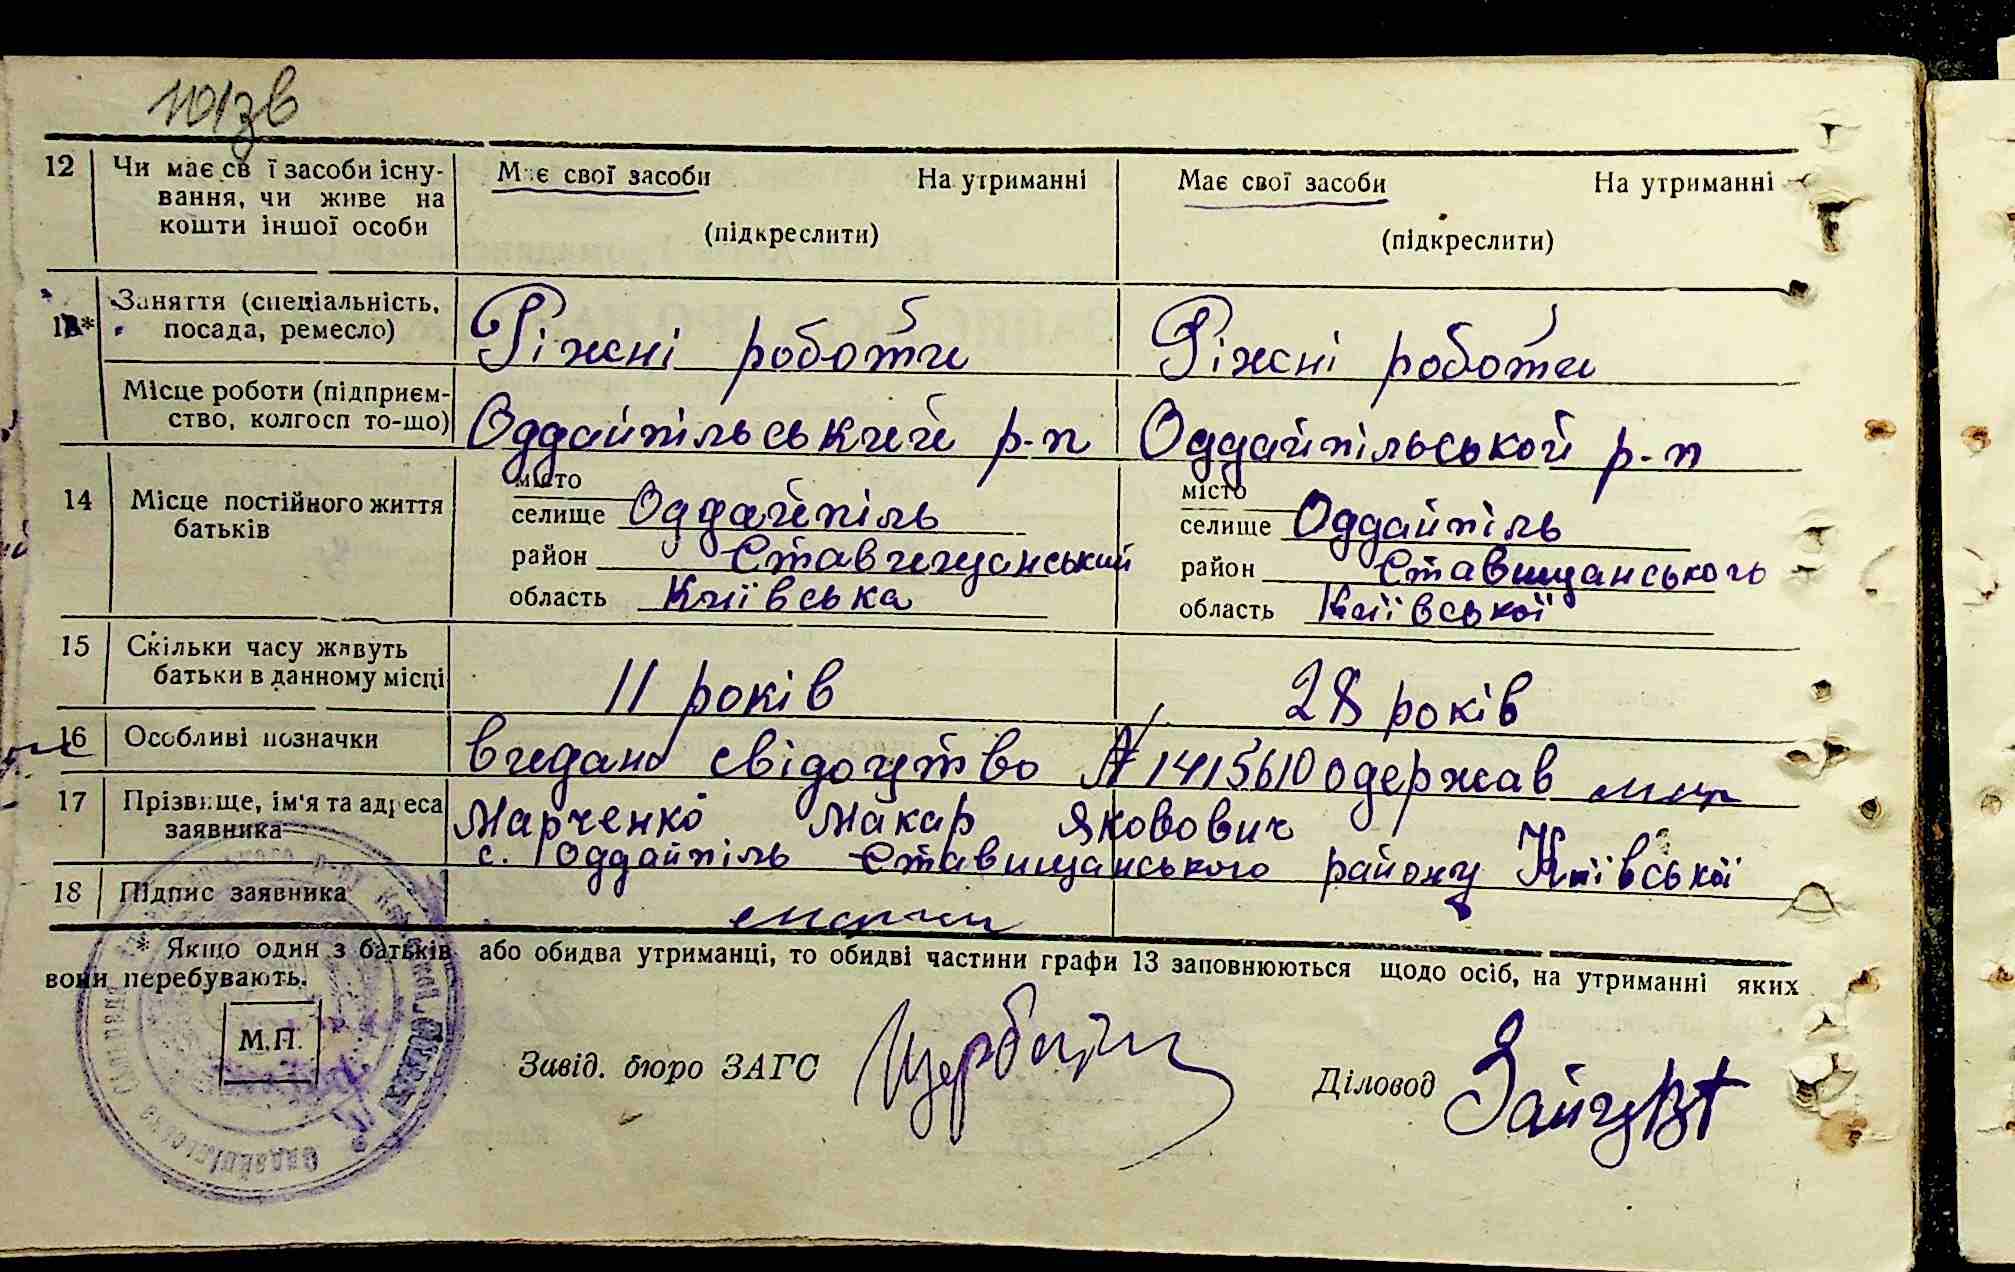 110/зв
12 Чи має св ї засоби існу- Має свої засоби На утриманні Має свої засоби На утриманні
вання, чи живе на
кошти іншої особи (підкреслити) (підкреслити)
13* Заняття (спеціальність, Ріжні роботи Ріжні роботи
посада, ремесло)
Місце роботи (підприєм- Оддайпільський р-п Оддайпільської р-п
ство, колгосп то-що)
14 Місце постійного життя місто місто
батьків селище Оддайпіль селище Оддайпіль
район Ставищанський район Ставищанського
область Київська область Київської
15 Скільки часу живуть 11 років 28 років
батьки в данному місці
16 Особливі позначки видано свідоцтво № 1415610 одержав
17 Прізвище, ім'я та адреса Марченко Макар Якович
заявника с. Оддайпіль Ставищанського району Київської
18 Підпис заявника
* Якщо один з батьків або обидва утриманці, то обидві частини графи 13 заповнюються щодо осіб, на утриманні яких
вони перебувають.
М.П.
Завід. бюро ЗАГС
Діловод